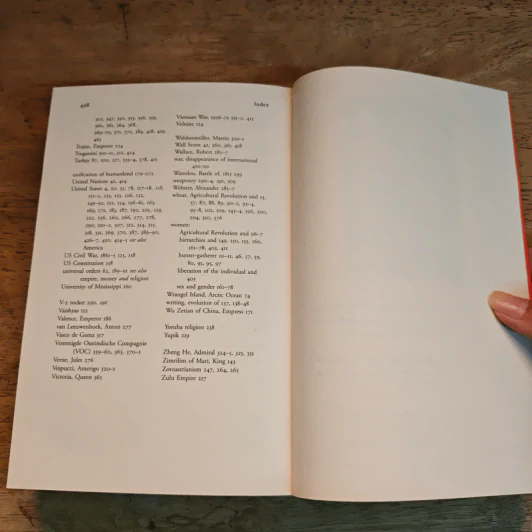 498
Index
312, 347, 350, 353, 356, 359,
360, 362, 364, 368,
369–70, 371, 372, 384, 418, 419,
463
Trajan, Emperor 224
Trugernini 310–11, 312, 424
Turkey 87, 100, 117, 231–4, 378, 415
unification of humankind 170–272
United Nations 42, 424
United States 4, 20, 53, 78, 117–18,
America
US Civil War, 1861–5 123, 158
US Constitution 158
universal orders 62, 189–91 see also
empire, money and religion
University of Mississippi 160
V-2 rocket 290, 291
Vaishyas 152
Valence, Emperor 186
van Leeuwenhoek, Anton 277
Vasco de Gama 317
Vereenigde Oostindische Compagnie
(VOC) 359–60, 363, 370–1
Verne, Jules 276
Vespucci, Amerigo 320–1
Victoria, Queen 365
Vietnam War, 1956–75 351–2, 415
Volozin 224
Waldseemüller, Martin 320–1
Wall Street 42, 360, 361, 418
Wallace, Robert 285–7
war, disappearance of international
410–20
Waterloo, Battle of, 1815 293
weaponry 290–4, 291, 309
Webster, Alexander 285–7
wheat, Agricultural Revolution and 13,
57, 87, 88, 89, 90–2, 93–4,
women:
Agricultural Revolution and 96–7
hierarchies and 149, 150, 155, 160,
161–78, 403, 411
hunter-gatherer 10–11, 46, 57, 59,
80, 91, 95, 97
liberation of the individual and
403
sex and gender 160–78
Wrangel Island, Arctic Ocean 74
writing, evolution of 137, 138–48
Wu Zetian of China, Empress 171
Yoruba religion 238
Yupik 229
Zheng He, Admiral 324–5, 325, 331
Zimrilim of Mari, King 143
Zoroastrianism 247, 264, 265
Zulu Empire 227